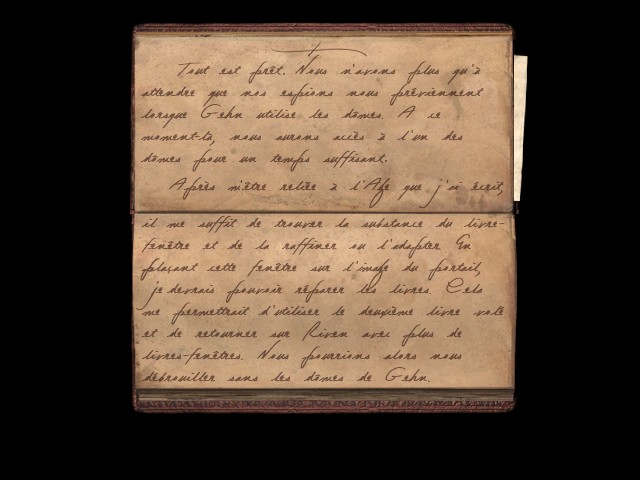 Tout est prêt. Nous n'avons plus qu'à
attendre que nos espions nous préviennent
lorsque Gehn utilise les dômes. A ce
moment-là, nous aurons accès à l'un des
dômes pour un temps suffisant.
Après m'être reliée à l'Age que j'ai écrit,
il me suffit de trouver la substance du livre-
fenêtre et de la raffiner ou l'adapter. En
plaçant cette fenêtre sur l'image du portail,
je devrais pouvoir réparer les livres. Cela
me permettrait d'utiliser le deuxième livre volé
et de retourner sur Riven avec plus de
livres-fenêtres. Nous pourrions alors nous
débrouiller sans les dômes de Gehn.